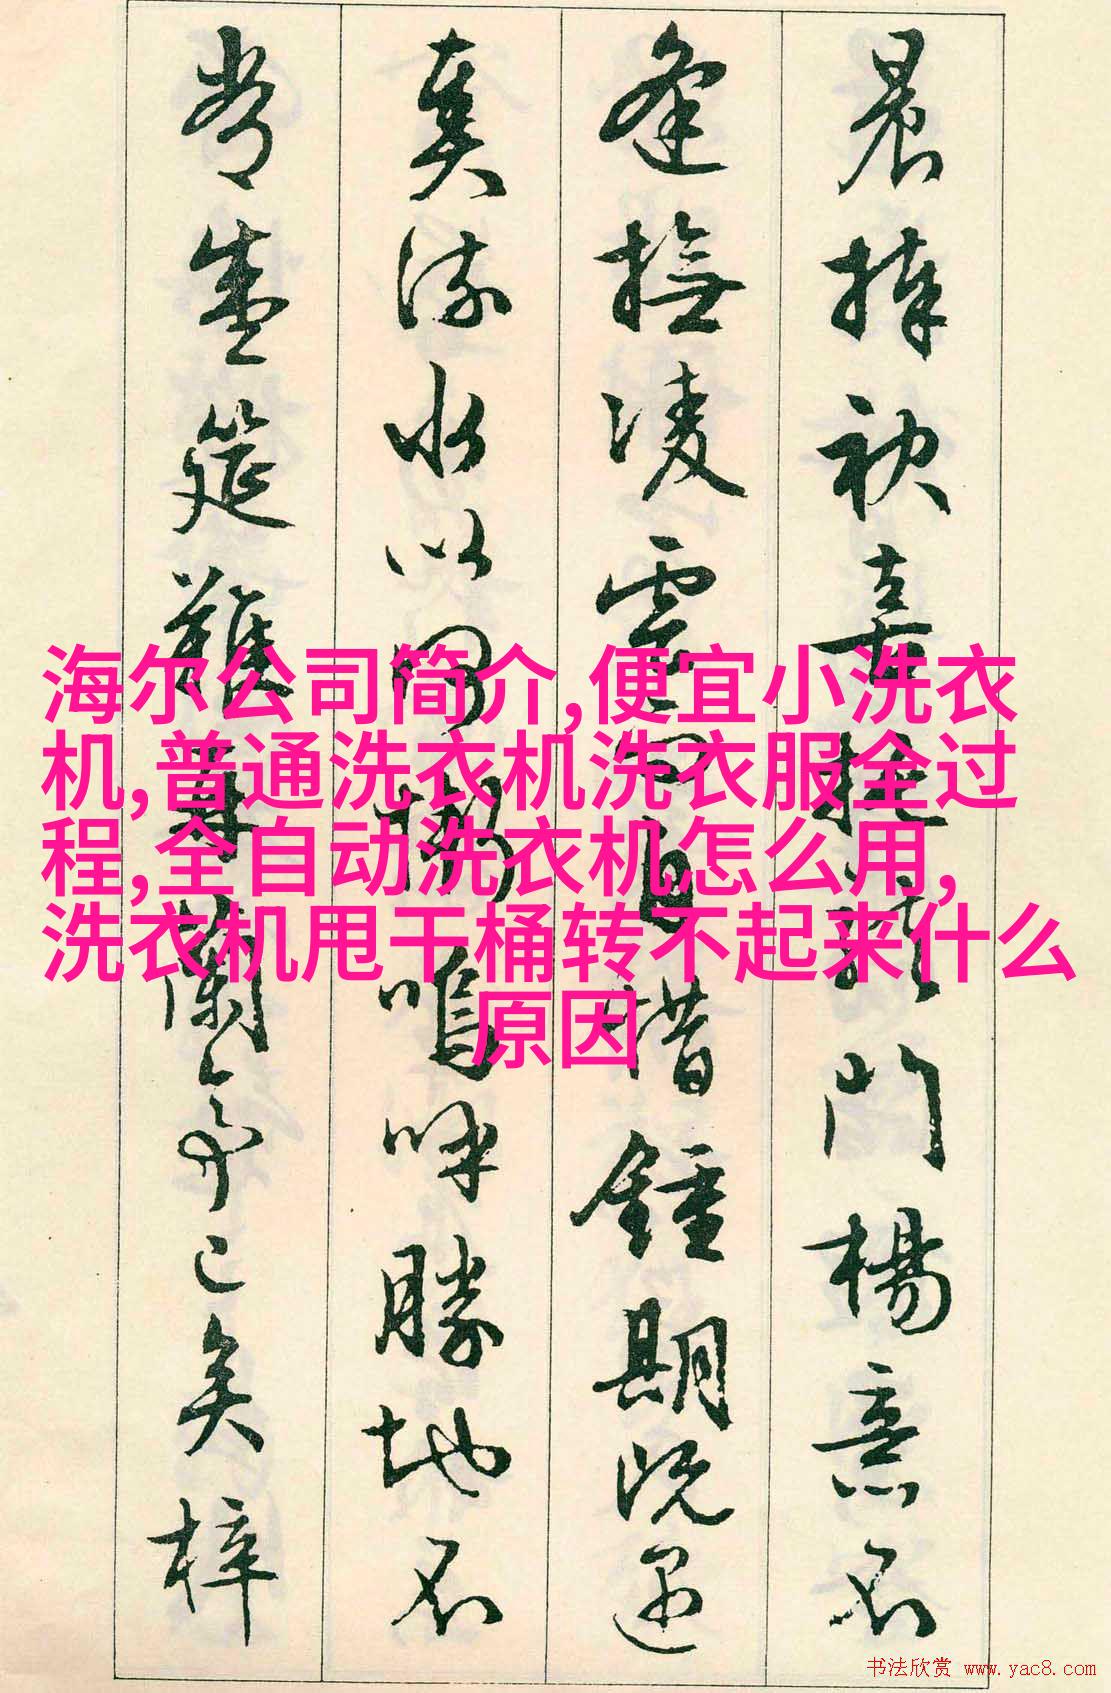 晨捧袂喜托龍門楊意不
逢撫凌雲而自惜鍾期既遇
奏流水以何慚嗚呼勝地不
常盛筵難再蘭亭已矣梓
海尔公司简介,便宜小洗衣
机,普通洗衣机洗衣服全过
程,全自动洗衣机怎么用,
洗衣机甩干桶转不起来什么
原因
书法欣赏 www.yac8.com